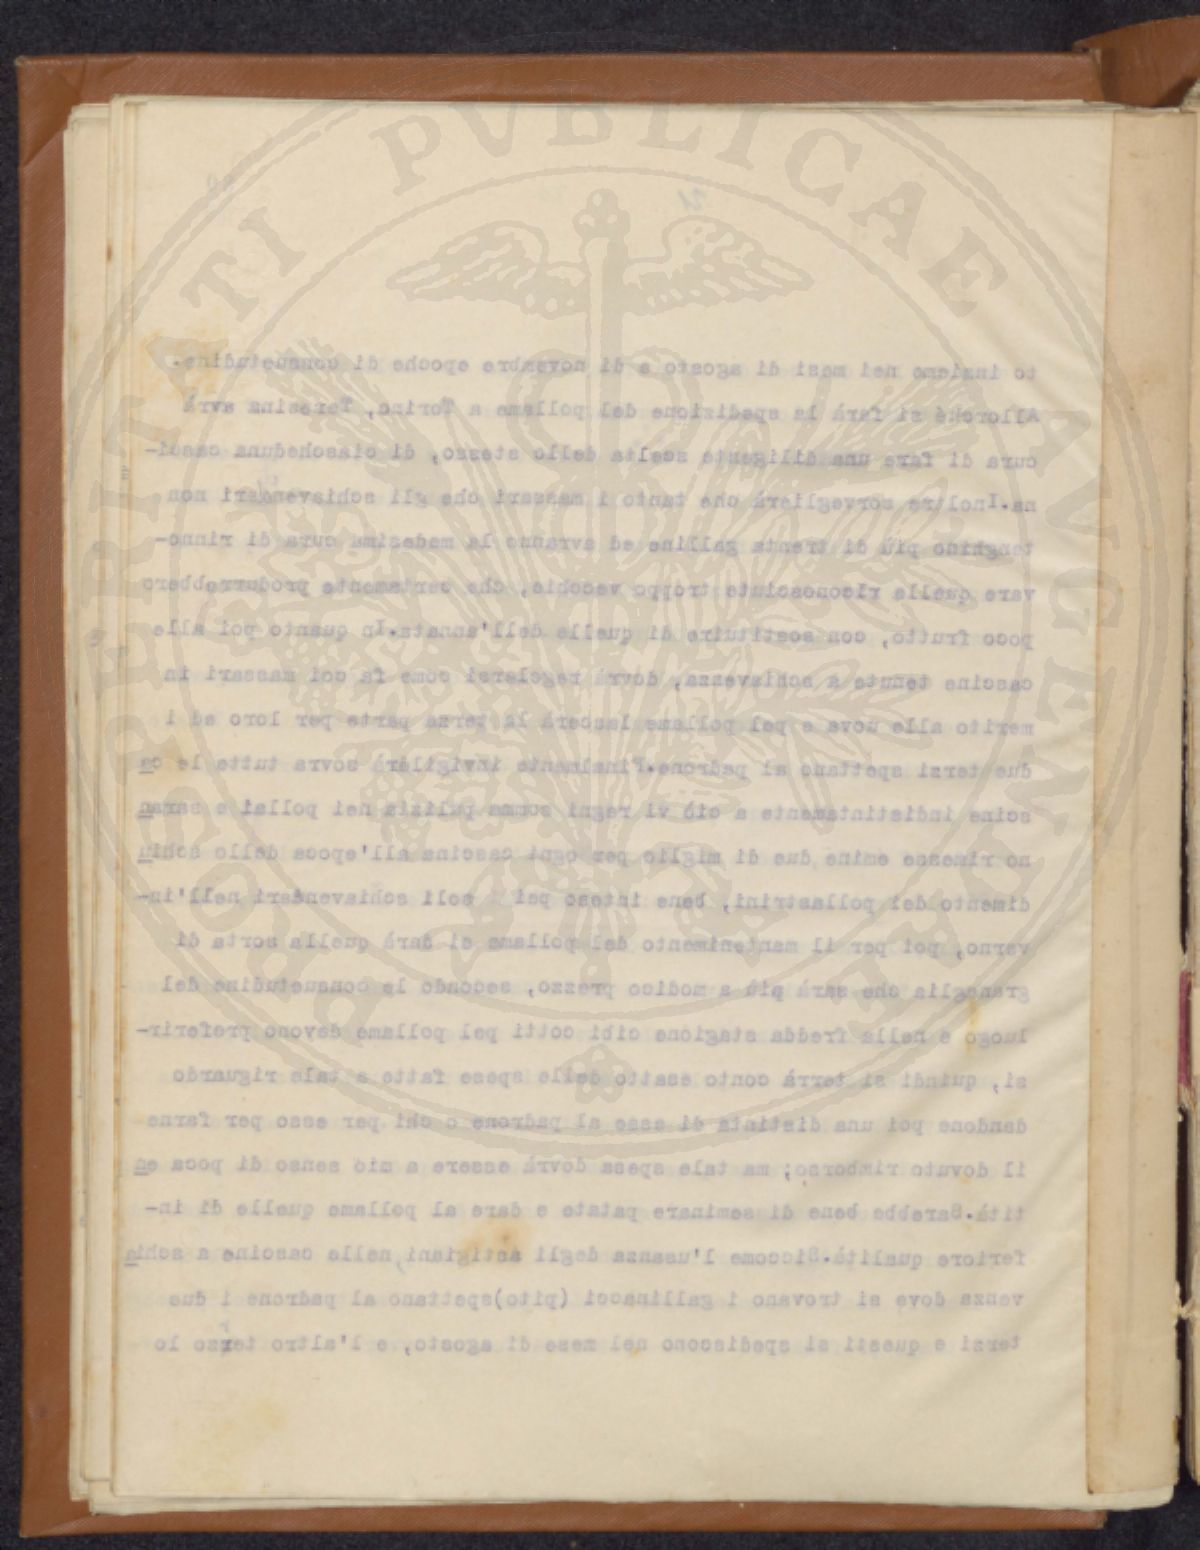 PROSPERITATI PVBLICAE AVGENDAE
21
to insieme nei mesi di agosto e di novembre epoche di consuetudine.
Allorché si farà la spedizione del pollame a Torino, Teresina avrà
cura di fare una diligente scelta dello stesso, di ciascheduna casci-
na.Inoltre sorveglierà che tanto i massari che gli schiavendari non
tenghino più di trenta galline ed avranno la medesima cura di rinno-
vare quelle riconosciute troppo vecchie, che certamente produrrebbero
poco frutto, con sostituire di quelle dell'annata.In quanto poi alle
cascine tenute a schiavenza, dovrà regolarsi come fa coi massari in
merito alle uova e pel pollame lascerà la terza parte per loro ed i
due terzi spettano al padrone.Finalmente invigilerà sovra tutte le ca
scine indistintamente a ciò vi regni somma pulizia nei pollai e saran
no rimesse emine due di miglio per ogni cascina all'epoca dello schiu
dimento dei pollastrini, bene inteso pei soli schiavendari nell'in-
verno, poi per il mantenimento del pollame si darà quella sorta di
granaglia che sarà più a modico prezzo, secondo le consuetudine del
luogo e nella fredda stagione cibi cotti pel pollame devono preferir-
si, quindi si terrà conto esatto delle spese fatte a tale riguardo
dandone poi una distinta di esse al padrone o chi per esso per farne
il dovuto rimborso; ma tale spesa dovrà essere a mio senso di poca en
tità.Sarebbe bene di seminare patate e dare al pollame quelle di in-
feriore qualità.Siccome l'usanza degli astigiani, nelle cascine a schia
venza dove si trovano i gallinacci (pito)spettano al padrone i due
terzi e questi si spediscono nel mese di agosto, e l'altro terzo lo